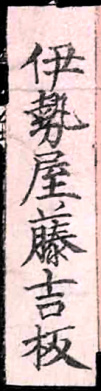 伊勢屋藤吉板